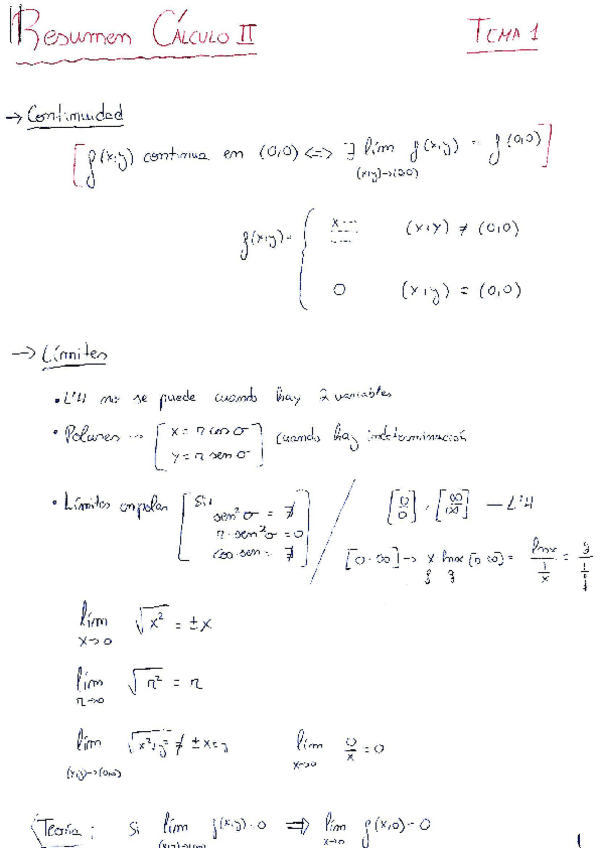 Resumen Cálculo II
Tema 1
→ Continuidad
[f(x,y) continua en (0,0) <=> ∃ lím f(x,y) = f(0,0)]
(x,y)→(0,0)
f(x,y) = { x... (x,y) ≠ (0,0)
0 (x,y) = (0,0)
→ Límites
• L'H no se puede cuando hay 2 variables
• Polares ... [x = r cos σ
y = r sen σ] cuando hay indeterminación
• Límites en polar [Si:
sen²σ = ∄
r·sen²σ = 0
cos·sen = ∄]
[0/0], [∞/∞] — L'H
[0·∞] → x lnx [0·∞] = lnx / (1/x) = g / (1/f)
f g
lím √x² = ±x
x→0
lím √r² = r
r→0
lím √x²+y² ≠ ±x±y
(x,y)→(0,0)
lím 0/x = 0
x→0
Teoría: Si lím f(x,y) = 0 ⟹ lím f(x,0) = 0
(x,y)→(0,0) x→0
1